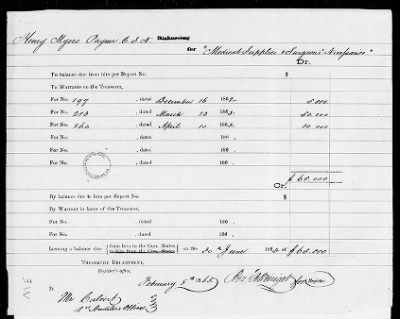 Henry Myers Paymr C.S.N. Disbursing
for "Medical Supplies & Surgeons Necessaries"
Dr.
To balance due from him per Report No. $
To Warrants on the Treasurer,
For No. 197 , dated December 16 1862. 8.000
For No. 253 , dated March 23 1863. 50.000
For No. , dated April 10 1863. 10.000
For No. , dated 186 .
For No. , dated 186 .
For No. , dated 186 .
$ 68.000
Cr.
By balance due to him per Report No. $
By Warrant in favor of the Treasurer,
For No. , dated 186 .
For No. , dated 186 .
Leaving a balance due from him to the Con. States on the 30th June 186 $ 68.000
to him from the Con. States
TREASURY DEPARTMENT,
Register's office,
February 5th
Register
To
Mr Calvert
1st Auditors Office